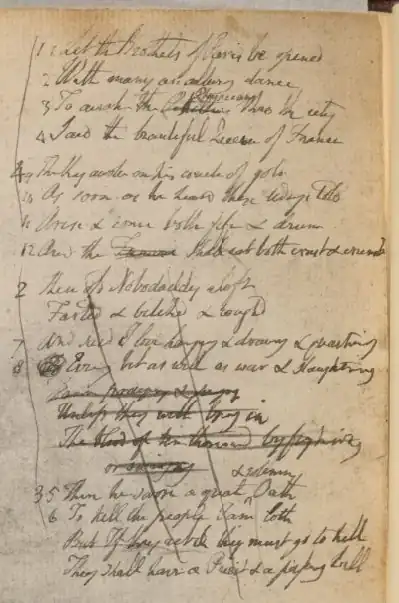 1 Let the Brothels of Paris be opened
2 With many an alluring dance
Physicians
3 To awake the thro the city
4 Said the beautiful Queen of France
The King awoke on his couch of gold
10 As soon as he heard these tidings told
11 Arise & come both fife & drum
12 And the Famine shall eat both crust & crumb
2 Then old Nobodaddy aloft
Farted & belchd & coughd
7 And said I love hanging & drawing & quartering
8 Every bit as well as war & slaughtering
Damn praying & singing
Unless they will bring in
The blood of ten thousand by fighting
or swinging
& solemn
5 Then he swore a great Oath
6 To kill the people I am loth
But If they rebel they must go to hell
They shall have a Priest & a passing bell